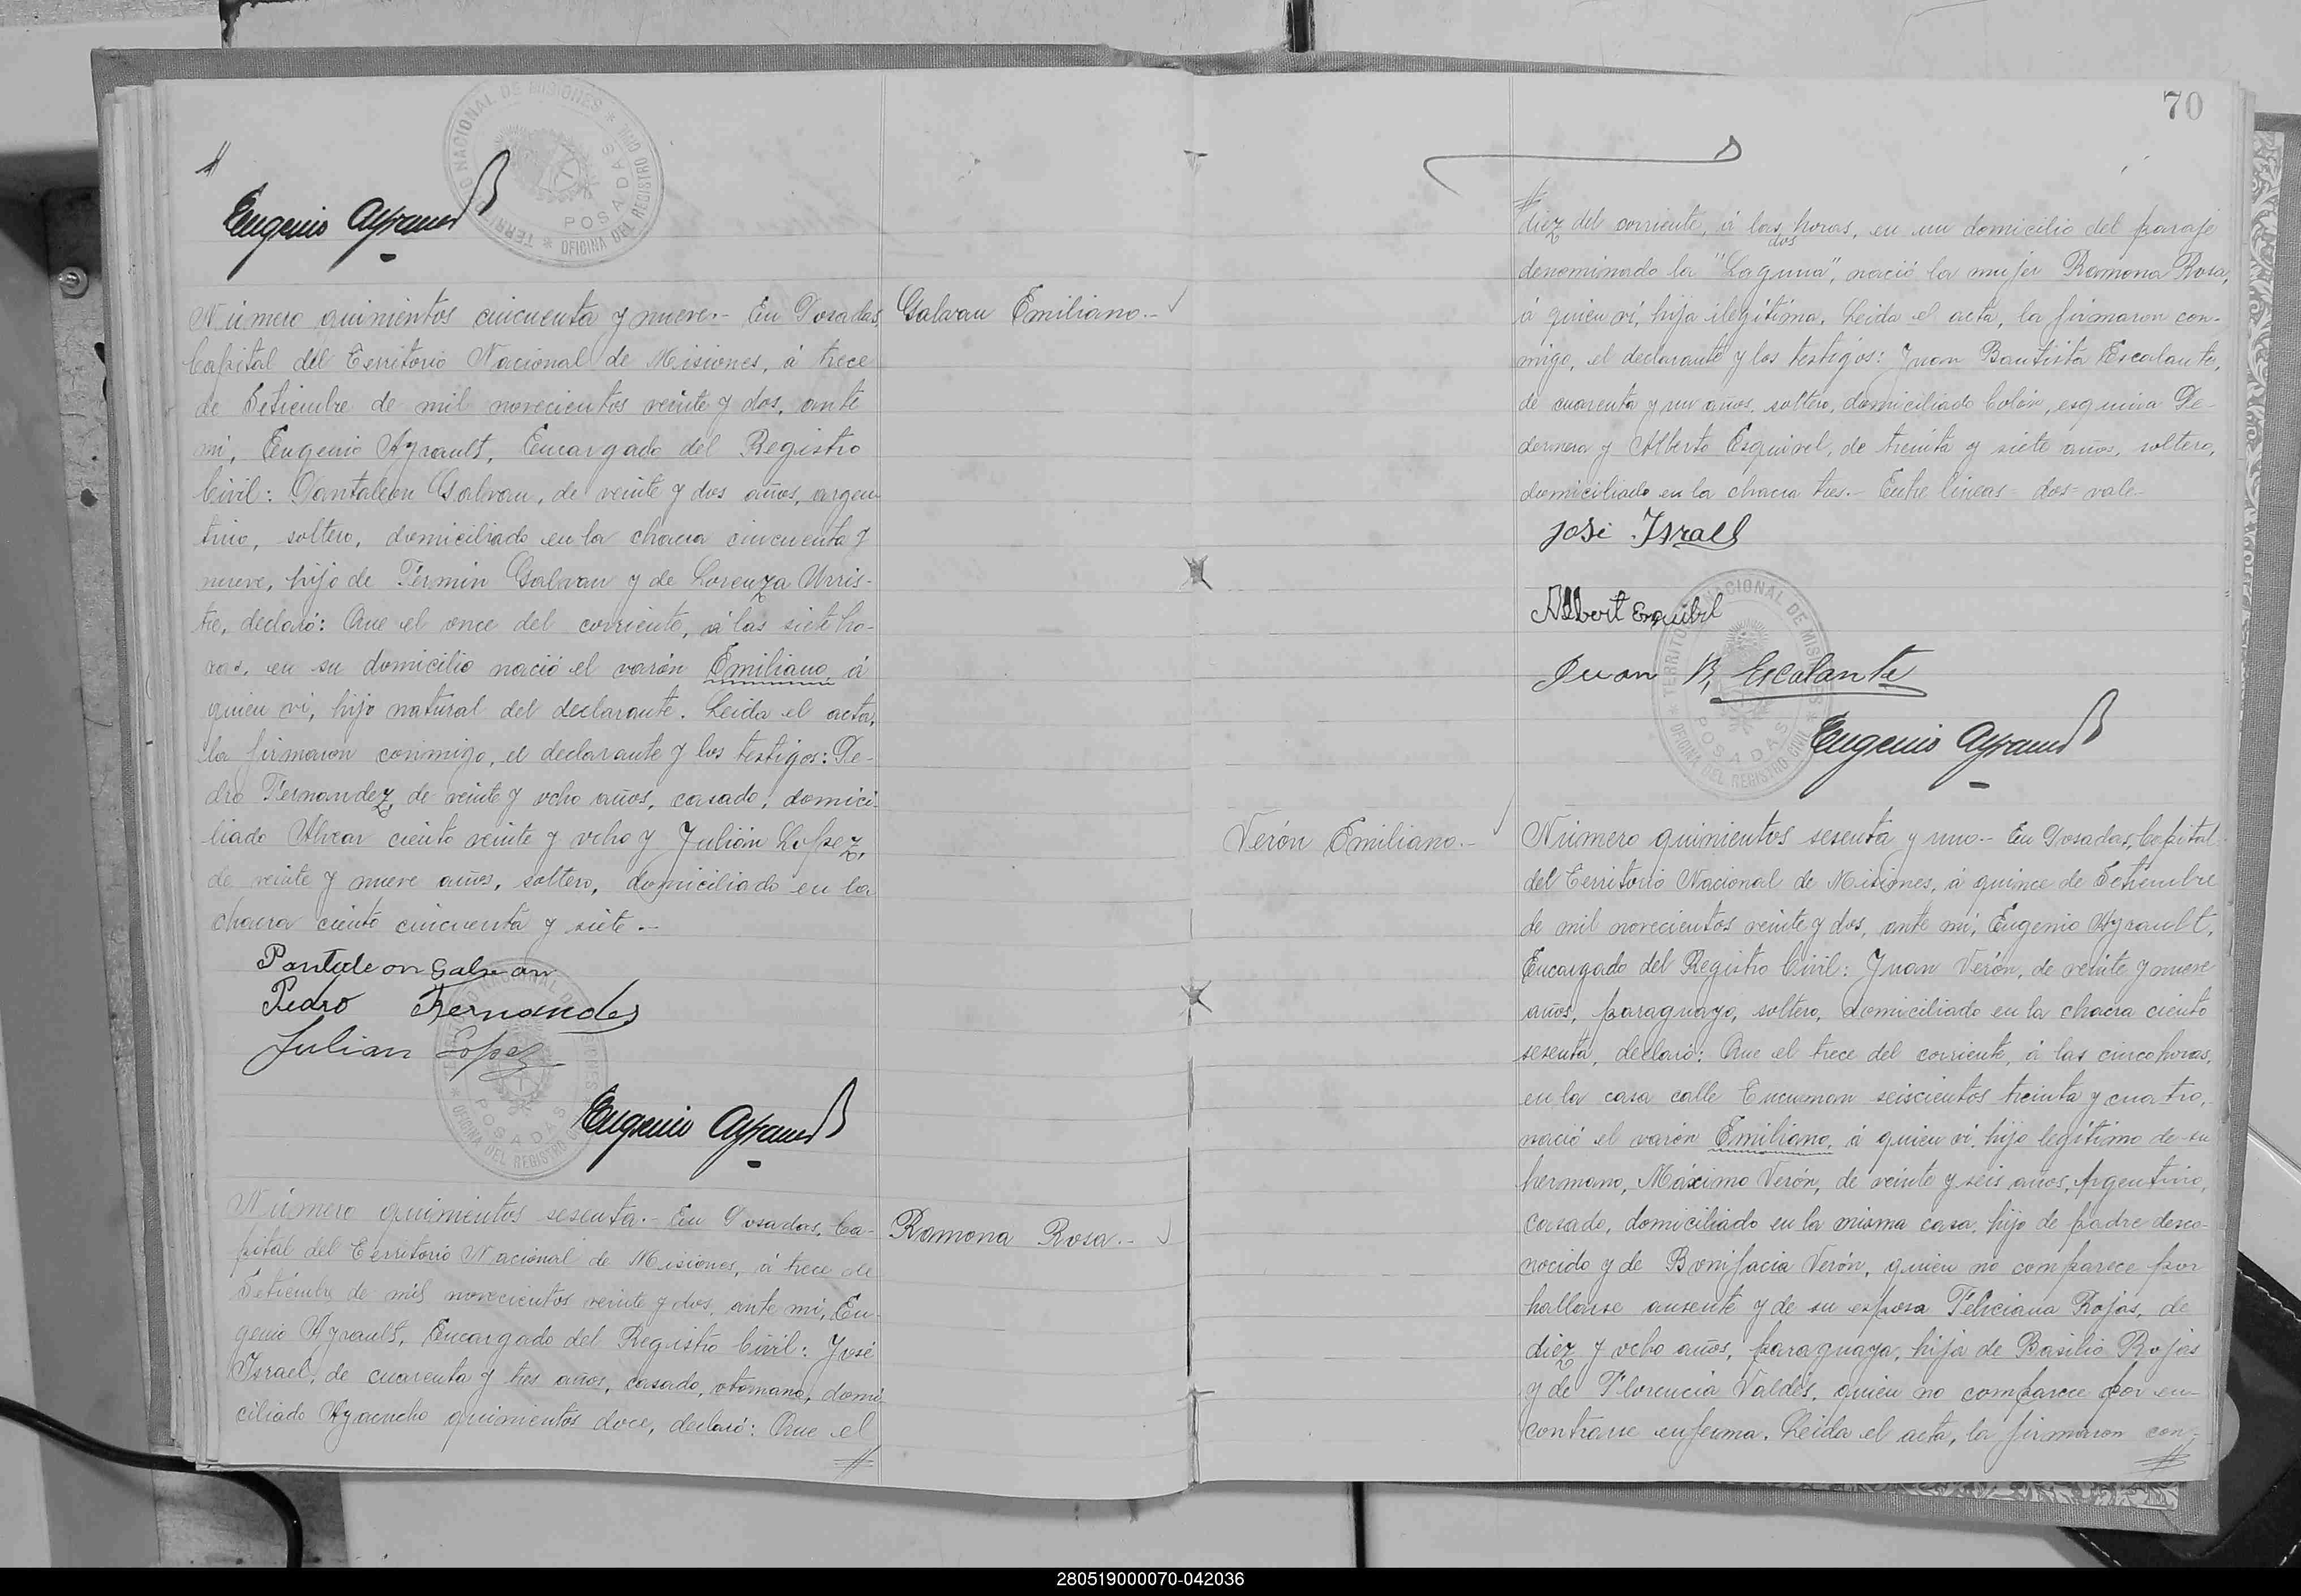 Eugenio Ayrault
TERRITORIO NACIONAL DE MISIONES * OFICINA DEL REGISTRO CIVIL *
POSADAS
Número quinientos cincuenta y nueve.- En Posadas,
Capital del Territorio Nacional de Misiones, á trece
de Setiembre de mil novecientos veinte y dos, ante
mi, Eugenio Ayrault, Encargado del Registro
Civil: Pantaleon Galvan, de veinte y dos años, argen-
tino, soltero, domiciliado en la chacra cincuenta y
nueve, hijo de Fermin Galvan y de Lorenza Urris-
tre, declaró: Que el once del corriente, á las siete ho-
ras, en su domicilio nació el varón Emiliano, á
quien vi, hijo natural del declarante. Leida el acta,
la firmaron conmigo, el declarante y los testigos: Pe-
dro Fernandez, de veinte y ocho años, casado, domici-
liado Alvear ciento veinte y ocho y Julián Lopez,
de veinte y nueve años, soltero, domiciliado en la
chacra ciento cincuenta y siete.-
Galvan Emiliano.-
Pantaleon Galvan
Pedro Fernandes
Julian Lopez
Eugenio Ayrault
TERRITORIO NACIONAL DE MISIONES * OFICINA DEL REGISTRO CIVIL *
POSADAS
Número quinientos sesenta.- En Posadas, Ca-
pital del Territorio Nacional de Misiones, á trece de
Setiembre de mil novecientos veinte y dos, ante mi, Eu-
genio Ayrault, Encargado del Registro Civil: José
Israel, de cuarenta y tres años, casado, otomano, domi-
ciliado Ayacucho quinientos doce, declaró: Que el
Ramona Rosa.-
70
diez del corriente, á las horas, en un domicilio del paraje
dos
denominado la "Laguna", nació la mujer Ramona Rosa,
á quien vi, hija ilegítima. Leida el acta, la firmaron con-
migo, el declarante y los testigos: Juan Bautista Escalante,
de cuarenta y un años, soltero, domiciliado Colón, esquina Pe-
dernera y Alberto Esquivel, de treinta y siete años, soltero,
domiciliado en la chacra tres.- Entre lineas= dos= vale-
José Israel
Albert Esquibil
Juan B. Escalante
Eugenio Ayrault
TERRITORIO NACIONAL DE MISIONES * OFICINA DEL REGISTRO CIVIL *
POSADAS
Verón Emiliano.-
Número quinientos sesenta y uno.- En Posadas, Capital
del Territorio Nacional de Misiones, á quince de Setiembre
de mil novecientos veinte y dos, ante mi, Eugenio Ayrault,
Encargado del Registro Civil: Juan Verón, de veinte y nueve
años, paraguayo, soltero, domiciliado en la chacra ciento
sesenta, declaró: Que el trece del corriente, á las cinco horas,
en la casa calle Tucuman seiscientos treinta y cuatro,
nació el varón Emiliano, á quien vi, hijo legítimo de su
hermano, Máximo Verón, de veinte y seis años, Argentino,
casado, domiciliado en la misma casa, hijo de padre desco-
nocido y de Bonifacia Verón, quien no comparece por
hallarse ausente y de su esposa Feliciana Rojas, de
diez y ocho años, paraguaya, hija de Basilio Rojas
y de Florencia Valdés, quien no comparece por en-
contrarse enferma. Leida el acta, la firmaron con-
280519000070-042036